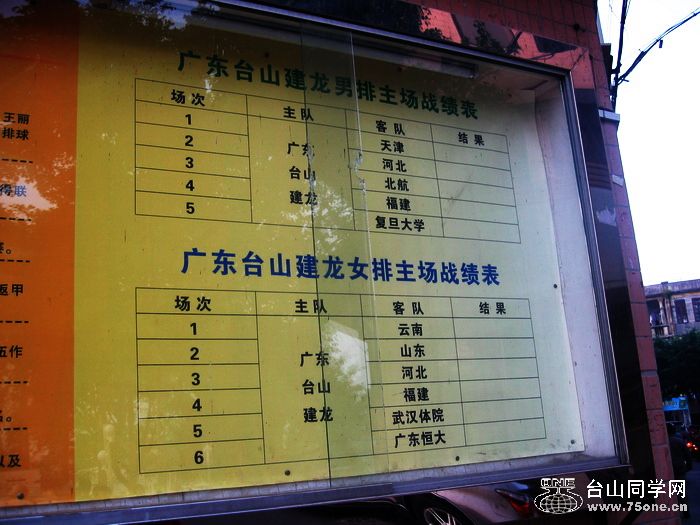 王丽
排球
得联
赛。
返甲
伍作
以及
广东台山建龙男排主场战绩表
场次 主队 客队 结果
1 天津
2 河北
3 北航
4 福建
5 复旦大学
广东
台山
建龙
广东台山建龙女排主场战绩表
场次 主队 客队 结果
1 云南
2 山东
3 河北
4 福建
5 武汉体院
6 广东恒大
广东
台山
建龙
台山同学网
www.75one.cn